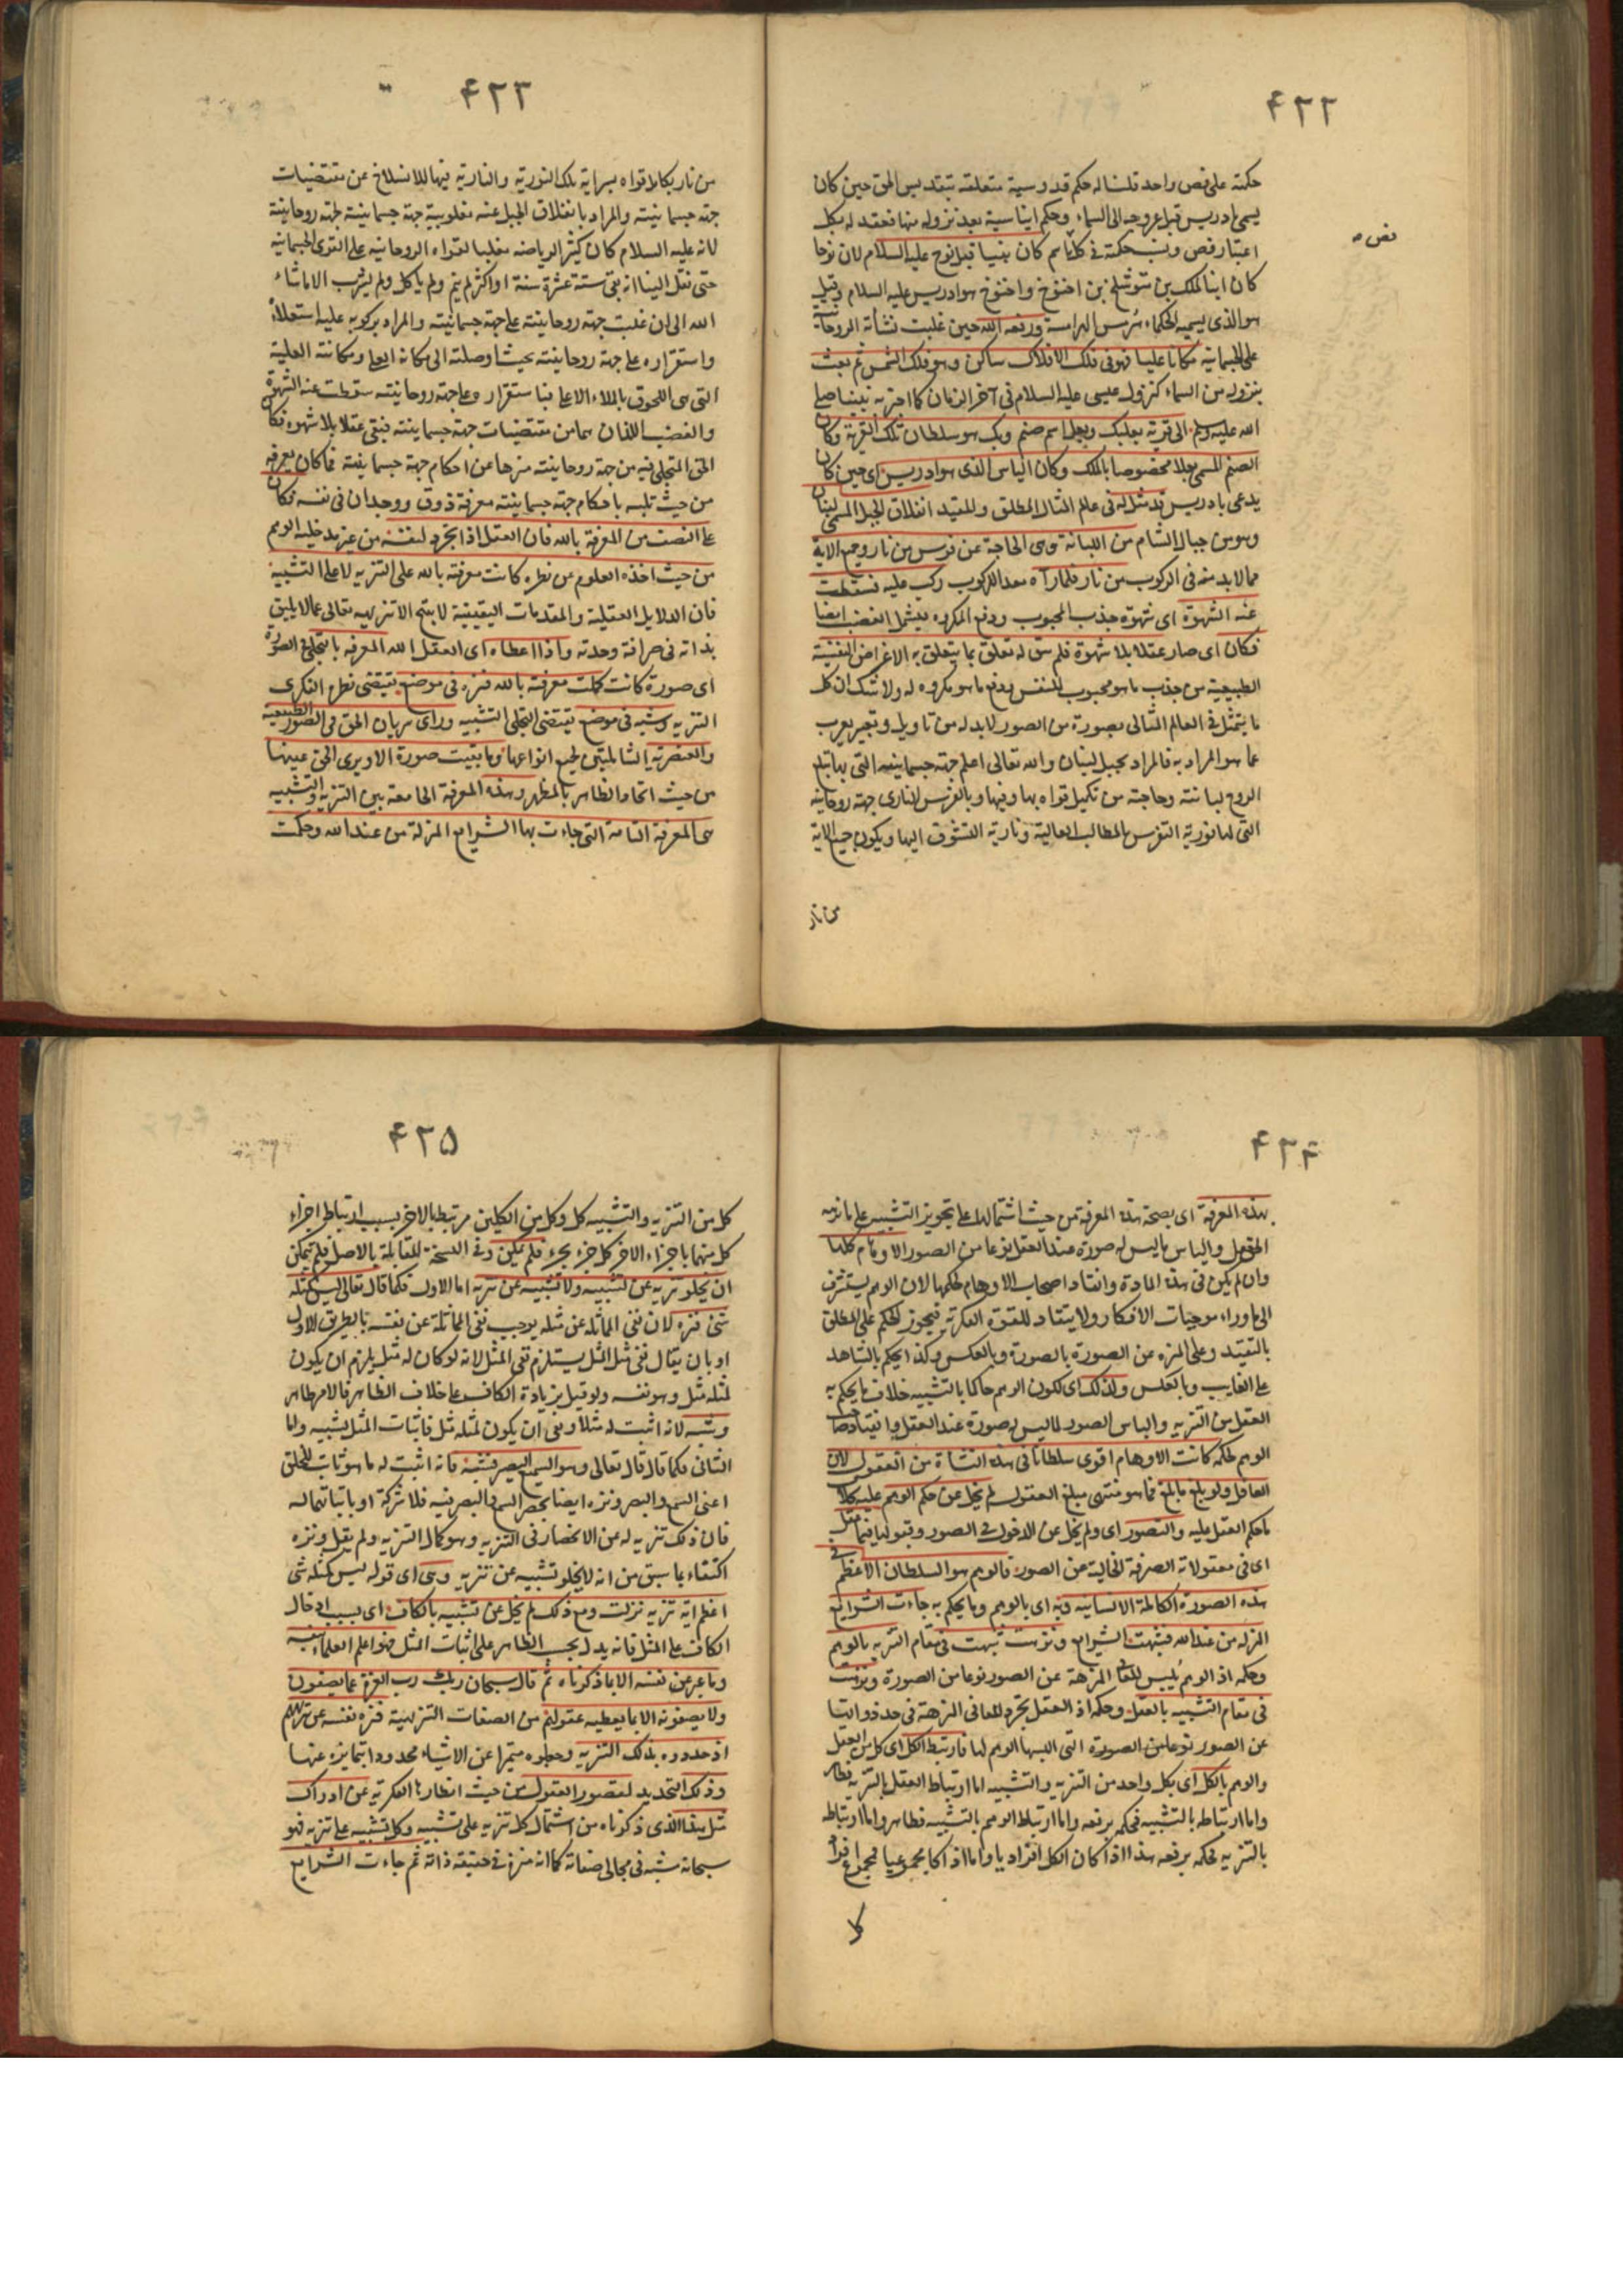 ۴۲۲
حكمته على فص واحد قلنا له حكم قدوسية متعلقة بتقديس الحق حين كان
يسمى ادريس قبل عروجه الى السماء وحكم ايناسية بعد نزوله منها فعقد له بكل
اعتبار فص ونسب حكمته فى كل باسم كان نبيا قبل نوح عليه السلام لان نوحا
كان ابنا لملك بن متوشلخ بن اخنوخ واخنوخ هو ادريس عليه السلام وقيل
هو الذى يسميه الحكماء هرمس الهرامسة ورفعه الله حين غلبت نشأته الروحانية
على الجسمانية مكانا عليا فهو فى فلك الافلاك ساكن وهو فلك الشمس ثم بعث
بنزوله من السماء كنزول عيسى عليه السلام فى آخر الزمان كما اخبر به نبينا صلى
الله عليه وسلم الى قرية بعلبك وبعل اسم صنم وبك هو سلطان تلك القرية وكان
الصنم المسمى بعلا مخصوصا بالملك وكان الياس الذى هو ادريس اى حين كان
يدعى بادريس قد مثل له فى عالم المثال المطلق والمقيد انفلاق الجبل المسمى لبنان
وهو من جبال الشام من اللبانة وهى الحاجة عن فرس من نار وجميع الاته
مما لابد منه فى الركوب من نار فلما رآه معدا للركوب ركب عليه فسقطت
عنه الشهوة اى شهوة جذب المحبوب ودفع المكروه فيشمل الغضب ايضا
فكان اى صار عقلا بلا شهوة فلم يبق له تعلق بما يتعلق به الاغراض النفسية
الطبيعية من جذب ما هو محبوب للنفس ودفع ما هو مكروه له ولا شك ان كل
ما يتمثل فى العالم المثالى بصورة من الصور لابد له من تاويل وتعبير يعرب
عما هو المراد به فالمراد بجبل لبنان والله تعالى اعلم جهة جسمانيته التى بها يبلغ
الروح لبانته وحاجته من تكميل قواه بها وفيها وبالفرس النارى جهة روحانيته
التى لها نورية التفرس بالمطالب العالية ونارية التشوق اليها ويكون جميع الاته
من نار
۴۲۳
من نار بكمال قواه بسراية تلك النورية والنارية فيها للانسلاخ عن مقتضيات
جهة جسمانيته والمراد بانفلاق الجبل عنه مغلوبية جهة جسمانيته لجهة روحانيته
لانه عليه السلام كان كثير الرياضة مغلبا لقواه الروحانية على القوى الجسمانية
حتى نقل الينا انه بقى ستة عشرة سنة او اكثر لم ينم ولم ياكل ولم يشرب الا ما شاء
الله الى ان غلبت جهة روحانيته على جهة جسمانيته والمراد بركوبه عليه استعلاؤه
واستقراره على جهة روحانيته بحيث اوصلته الى مكانه العلى ومكانته العلية
التى هى اللحوق بالملاء الاعلى فباستقراره على جهة روحانيته سقطت عنه الشهوة
والغضب اللذان هما من مقتضيات جهة جسمانيته فبقى عقلا بلا شهوة فكان
الحق المتجلى فيه من جهة روحانيته منزها عن احكام جهة جسمانيته فما كان يعرفه
من حيث تلبسه باحكام جهة جسمانيته معرفة ذوق ووجدان فى نفسه فكان
على النصف من المعرفة بالله فان العقل اذا تجرد لنفسه من غير مدخلية الوهم
من حيث اخذه العلوم عن نظره كانت معرفته بالله على التنزيه لا على التشبيه
فان الدلايل العقلية والمقدمات اليقينية لا ينتج الا تنزيهه تعالى عما لا يليق
بذاته فى صرافة وحدته واذا اعطاه اى العقل الله المعرفة بالتجلى فى الصورة
اى صورة كانت كملت معرفته بالله فنزه فى موضع يقتضى نظره الفكرى
التنزيه وشبه فى موضع يقتضى التجلى التشبيه وراى سريان الحق فى الصور الطبيعية
والعنصرية الشاملتين لجميع انواعها وما بقيت صورة الا ويرى الحق عينها
من حيث اتحاد الظاهر بالمظهر وهذه المعرفة الجامعة بين التنزيه والتشبيه
هى المعرفة التامة التى جاءت بها الشرايع المنزلة من عند الله وحكمت
نص ه
۴۲۴
بهذه المعرفة اى بصحة هذه المعرفة من حيث اشتمالها على تجويز التشبيه على ما نزهه
العقول والباس ما ليس له صورة عند العقل نوعا من الصور الاوهام كلها
وان لم يكن فى هذه المادة وانقاد اصحاب الاوهام لحكمها لان الوهم يستشرف
الى ما وراء موجبات الافكار ولا ينقاد للقوة الفكرية فيجوز الحكم على المطلق
بالتقييد وعلى المنزه عن الصورة بالصورة وبالعكس وكذا يحكم بالشاهد
على الغايب وبالعكس ولذلك اى لكون الوهم حاكما بالتشبيه خلاف ما يحكم به
العقل من التنزيه والباس الصور لما ليس له صورة عند العقل وانقياد صاحب
الوهم لحكمه كانت الاوهام اقوى سلطانا فى هذه النشاة من العقول لان
العاقل ولو بلغ ما بلغ فما هو منتهى مبلغ العقول لم يخل عن حكم الوهم عليه كلا
ما حكم العقل عليه والتصور اى ولم يخل عن الدخول فى الصور وقبولها فيما عقل
اى فى معقولاته الصرفة الخالية عن الصور فالوهم هو السلطان الاعظم فى
هذه الصورة الكاملة الانسانية وبه اى بالوهم وما يحكم به جاءت الشرايع
المنزلة من عند الله فشبهت الشرايع ونزهت شبهت فى مقام التنزيه بالوهم
وحكمه اذ الوهم يلبس المعانى المنزهة عن الصور نوعا من الصورة ونزهت
فى مقام التشبيه بالعقل وحكمه اذ العقل يجرد المعانى المنزهة فى حد ذواتها
عن الصور نوعا من الصورة التى البسها الوهم لها فارتبط الكل اى كل من العقل
والوهم بالكل اى بكل واحد من التنزيه والتشبيه اما ارتباط العقل بالتنزيه فظاهر
واما ارتباطه بالتشبيه فحكمه برفعه واما ارتباط الوهم بالتشبيه فظاهر واما ارتباطه
بالتنزيه فحكمه برفعه هذا اذا كان الكل افراديا واما اذا كان مجموعيا فمجموع افراد
كل
۴۲۵
كل من التنزيه والتشبيه كل وكل من الكلين مرتبط بالاخر بسبب ارتباط اجزاء
كل منهما باجزاء الاخر كل جزء بجزء فلم يمكن وفى النسخة المقابلة بالاصل فلم يتمكن
ان يخلو تنزيه عن تشبيه ولا تشبيه عن تنزيه اما الاول فكما قال تعالى ليس كمثله
شئ فنزه لان نفى المماثلة عن مثله يوجب نفى المماثلة عن نفسه بالطريق الاولى
او بان يقال نفى مثل المثل يستلزم نفى المثل لانه لو كان له مثل يلزم ان يكون
لمثله مثل وهو نفسه ولو قيل بزيادة الكاف على خلاف الظاهر فالامر ظاهر
وشبه لانه اثبت له مثلا ونفى ان يكون لمثله مثل فاثبات المثل تشبيه واما
الثانى فكما قال قال تعالى وهو السميع البصير فشبه فانه اثبت له ما هو ثابت للخلق
اعنى السمع والبصر ونزه ايضا بحصر السمع والبصر فيه فلا شركة او باثباتهما له
فان ذلك تنزيه له عن الانحصار فى التنزيه وهو كمال التنزيه ولم يقل ونزه
اكتفاء بما سبق من انه لا يخلو تشبيه عن تنزيه وهى اى قوله ليس كمثله شئ
اعظم اية تنزيه نزلت ومع ذلك لم يخل عن تشبيه بالكاف اى بسبب ادخال
الكاف على المثل فانه يدل بحسب الظاهر على اثبات المثل فهو اعلم العلماء بنفسه
وما عبر عن نفسه الا بما ذكرناه ثم قال سبحان ربك رب العزة عما يصفون
ولا يصفونه الا بما يعطيه عقولهم من الصفات التنزيهية فنزه نفسه عن تنزيههم
اذ حددوه بذلك التنزيه وجعلوه متميزا عن الاشياء محدودا بتمايزه عنها
وذلك التحديد لقصور العقول من حيث انظارها الفكرية عن ادراك
مثل هذا الذى ذكرناه من اشتمال كل تنزيه على تشبيه وكل تشبيه على تنزيه فهو
سبحانه شبه فى مجالى صفاته كما انه منزه فى حقيقة ذاته ثم جاءت الشرايع